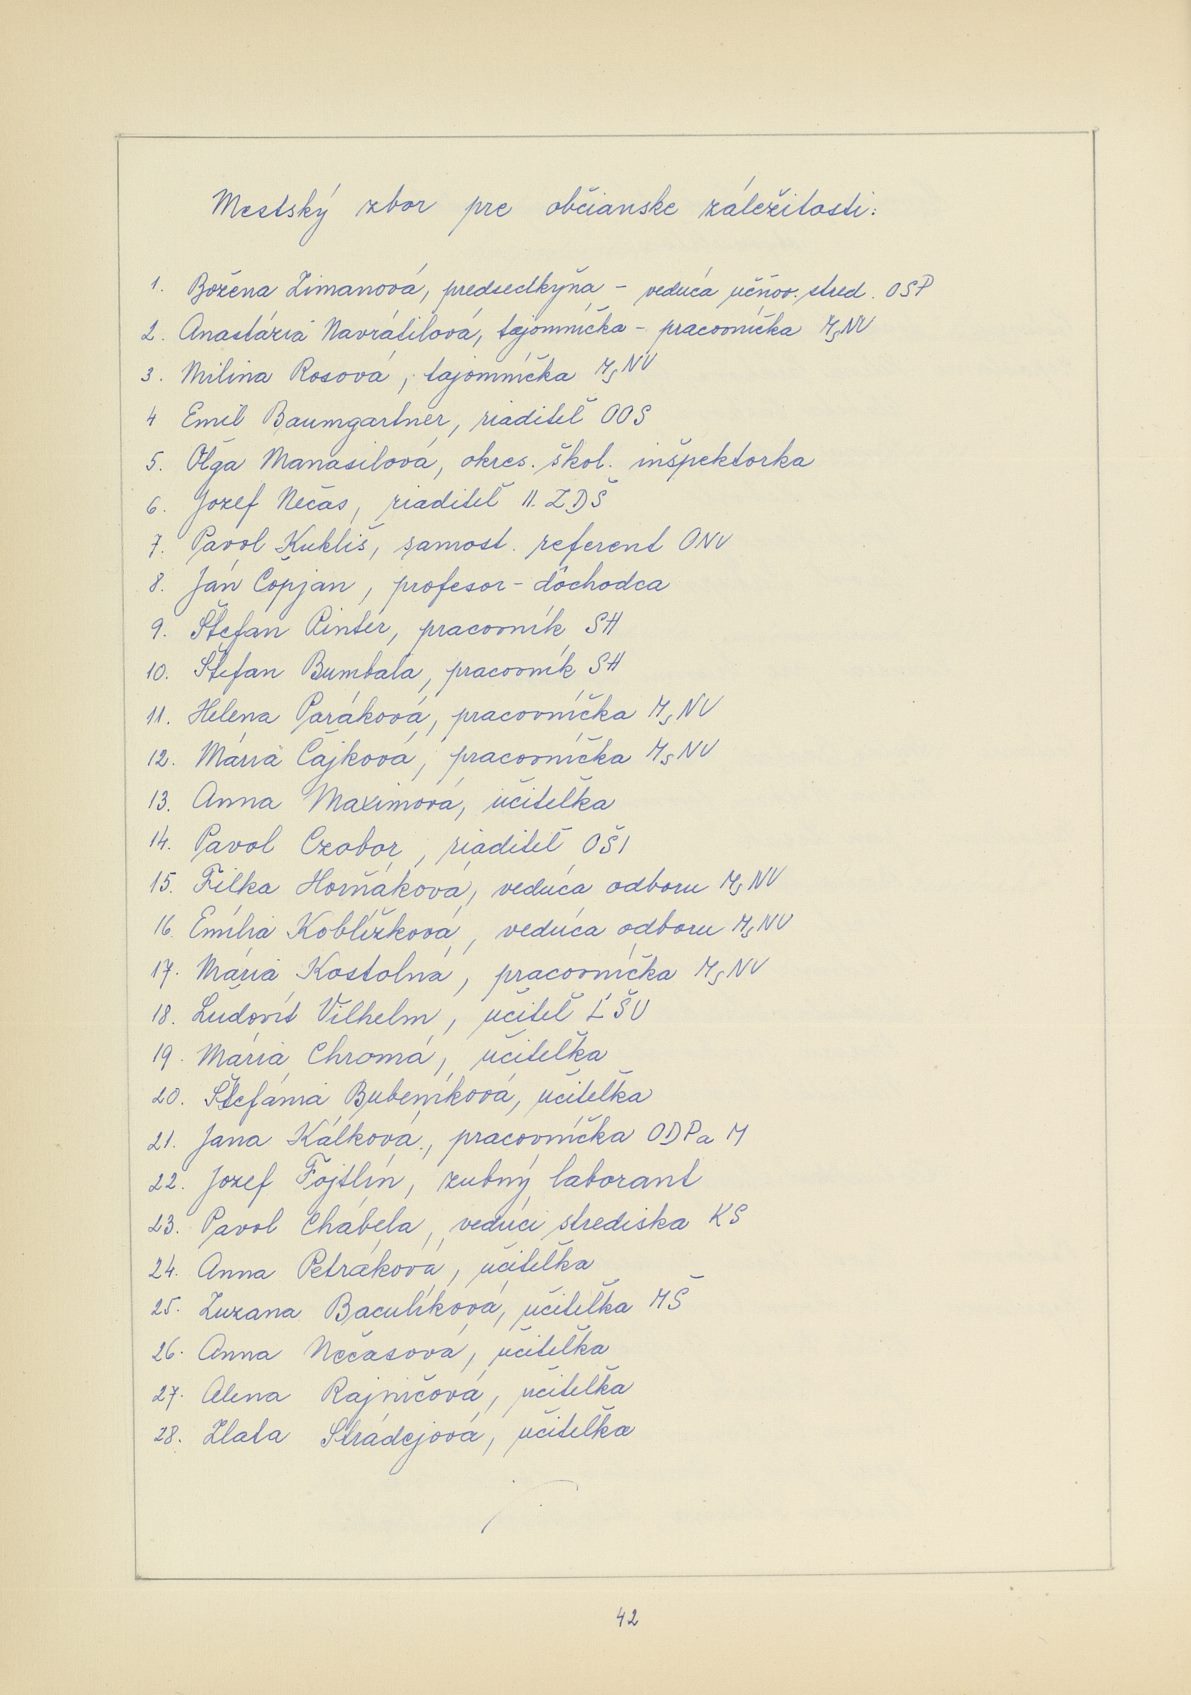 Mestský zbor pre občianske záležitosti:
1. Božena Zimanová, predsedkyňa - vedúca učňov. stred. OSP
2. Anastázia Navrátilová, tajomníčka - pracovníčka MsNV
3. Milina Rosová, tajomníčka MsNV
4 Emil Baumgartner, riaditeľ OOS
5. Oľga Manasilová, okres. škol. inšpektorka
6. Jozef Nečas, riaditeľ II. ZDŠ
7. Pavol Kukliš, samost. referent ONV
8. Ján Čopjan, profesor - dôchodca
9. Štefan Pintér, pracovník SH
10. Štefan Bumbala, pracovník SH
11. Helena Paráková, pracovníčka MsNV
12. Mária Čajková, pracovníčka MsNV
13. Anna Maximová, učiteľka
14. Pavol Czobor, riaditeľ OŠI
15. Filka Horňáková, vedúca odboru MsNV
16. Emília Koblížková, vedúca odboru MsNV
17. Mária Kostolná, pracovníčka MsNV
18. Ľudovít Vilhelm, učiteľ ĽŠU
19. Mária Chromá, učiteľka
20. Štefánia Bubeníková, učiteľka
21. Jana Kálková, pracovníčka ODPaM
22. Jozef Fojtlín, zubný laborant
23. Pavol Chábela, vedúci strediska KS
24. Anna Petráková, učiteľka
25. Zuzana Baculíková, učiteľka MŠ
26. Anna Nečasová, učiteľka
27. Alena Rajničová, učiteľka
28. Zlata Strádejová, učiteľka
42